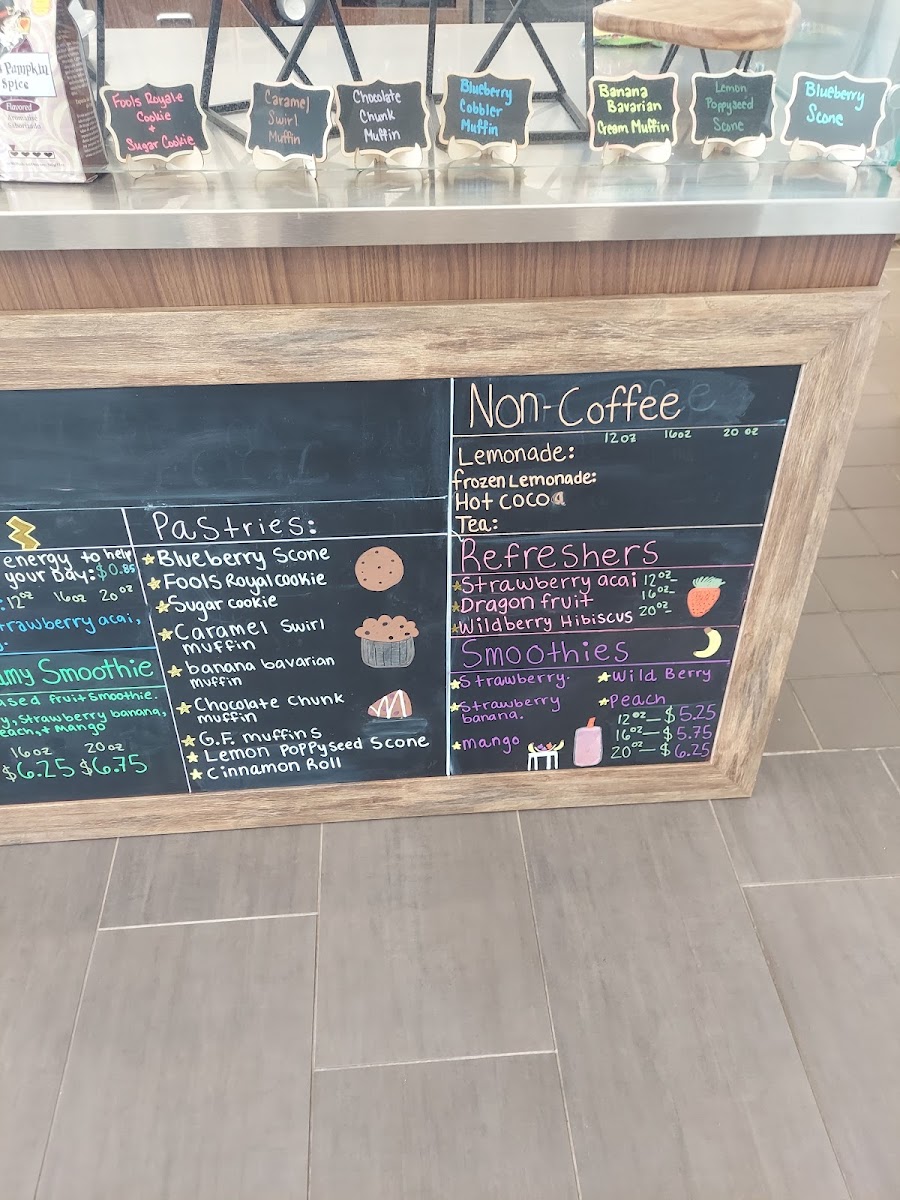 Pumpkin
Spice
Flavored
Fools Royale
Cookie
+
Sugar Cookie
Caramel
Swirl
Muffin
Chocolate
Chunk
Muffin
Blueberry
Cobbler
Muffin
Banana
Bavarian
Cream Muffin
Lemon
Poppyseed
Scone
Blueberry
Scone
energy to help
your Day: $0.85
12oz 16oz 20oz
trawberry acai,
my Smoothie
ased fruit smoothie.
y, Strawberry banana,
each, + Mango
16oz 20oz
$6.25 $6.75
Pastries:
Blueberry Scone
Fools Royal cookie
Sugar cookie
Caramel Swirl
muffin
banana bavarian
muffin
Chocolate Chunk
muffin
G.F. muffins
Lemon Poppyseed Scone
Cinnamon Roll
Non-Coffee
12oz 16oz 20oz
Lemonade:
frozen Lemonade:
Hot cocoa
Tea:
Refreshers
Strawberry acai 12oz-
Dragon fruit 16oz-
Wildberry Hibiscus 20oz-
Smoothies
Strawberry. Wild Berry
Strawberry
banana. Peach
mango
12oz-$5.25
16oz-$5.75
20oz-$6.25